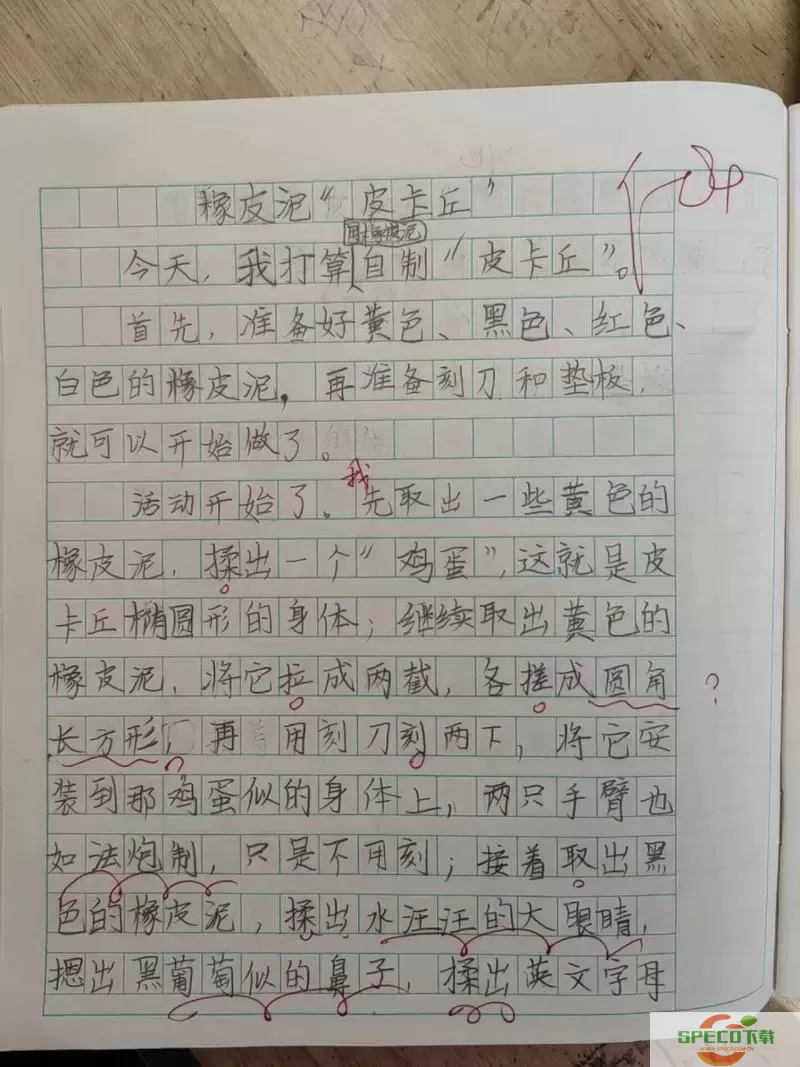 橡皮泥“皮卡丘”
用橡皮泥
今天，我打算自制“皮卡丘”。
首先，准备好黄色、黑色、红色、
白色的橡皮泥，再准备刻刀和垫板，
就可以开始做了。
我
活动开始了。先取出一些黄色的
橡皮泥，揉出一个“鸡蛋”，这就是皮
卡丘椭圆形的身体；继续取出黄色的
橡皮泥，将它拉成两截，各搓成圆角
？
长方形，再用刻刀刻两下，将它安
装到那鸡蛋似的身体上，两只手臂也
如法炮制，只是不用刻；接着取出黑
色的橡皮泥，揉出水汪汪的大眼睛，
摁出黑葡萄似的鼻子，揉出英文字母
SPECO下载
WWW.SPECO.COM.CN